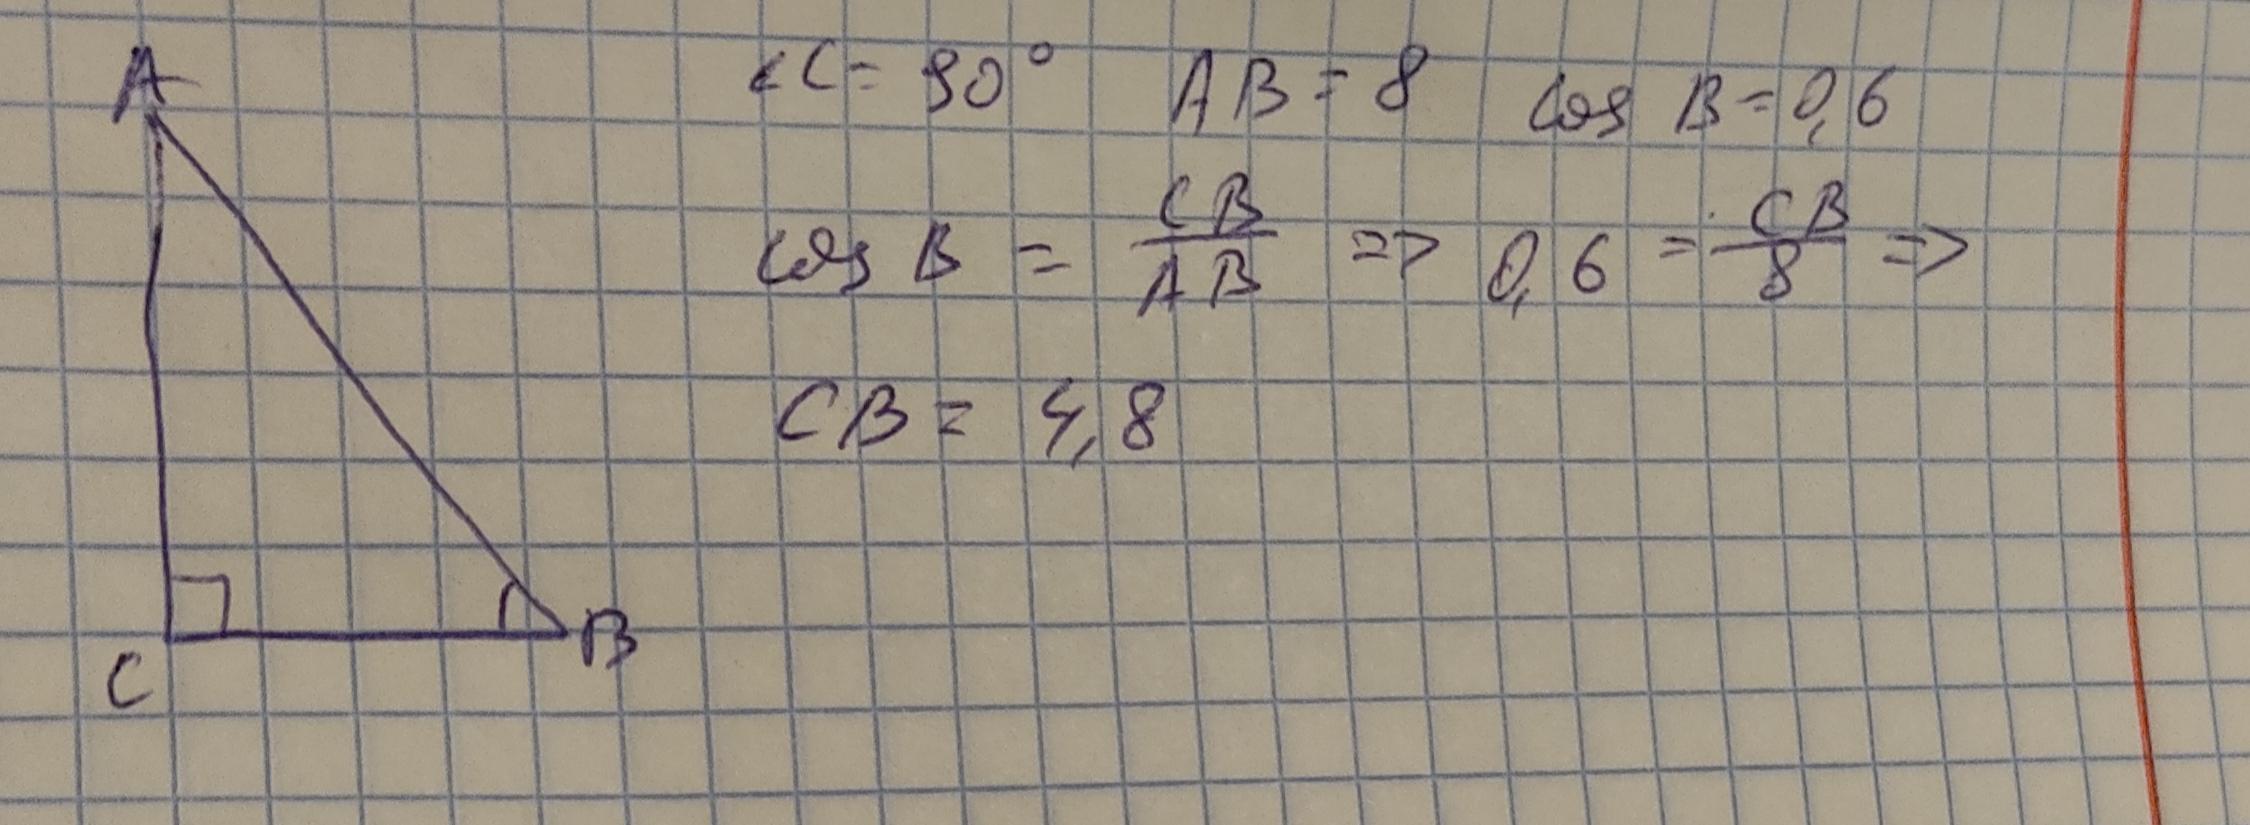 A
∠C = 90° AB = 8 cos B = 0,6
cos B = CB/AB => 0,6 = CB/8 =>
CB = 4,8
C B